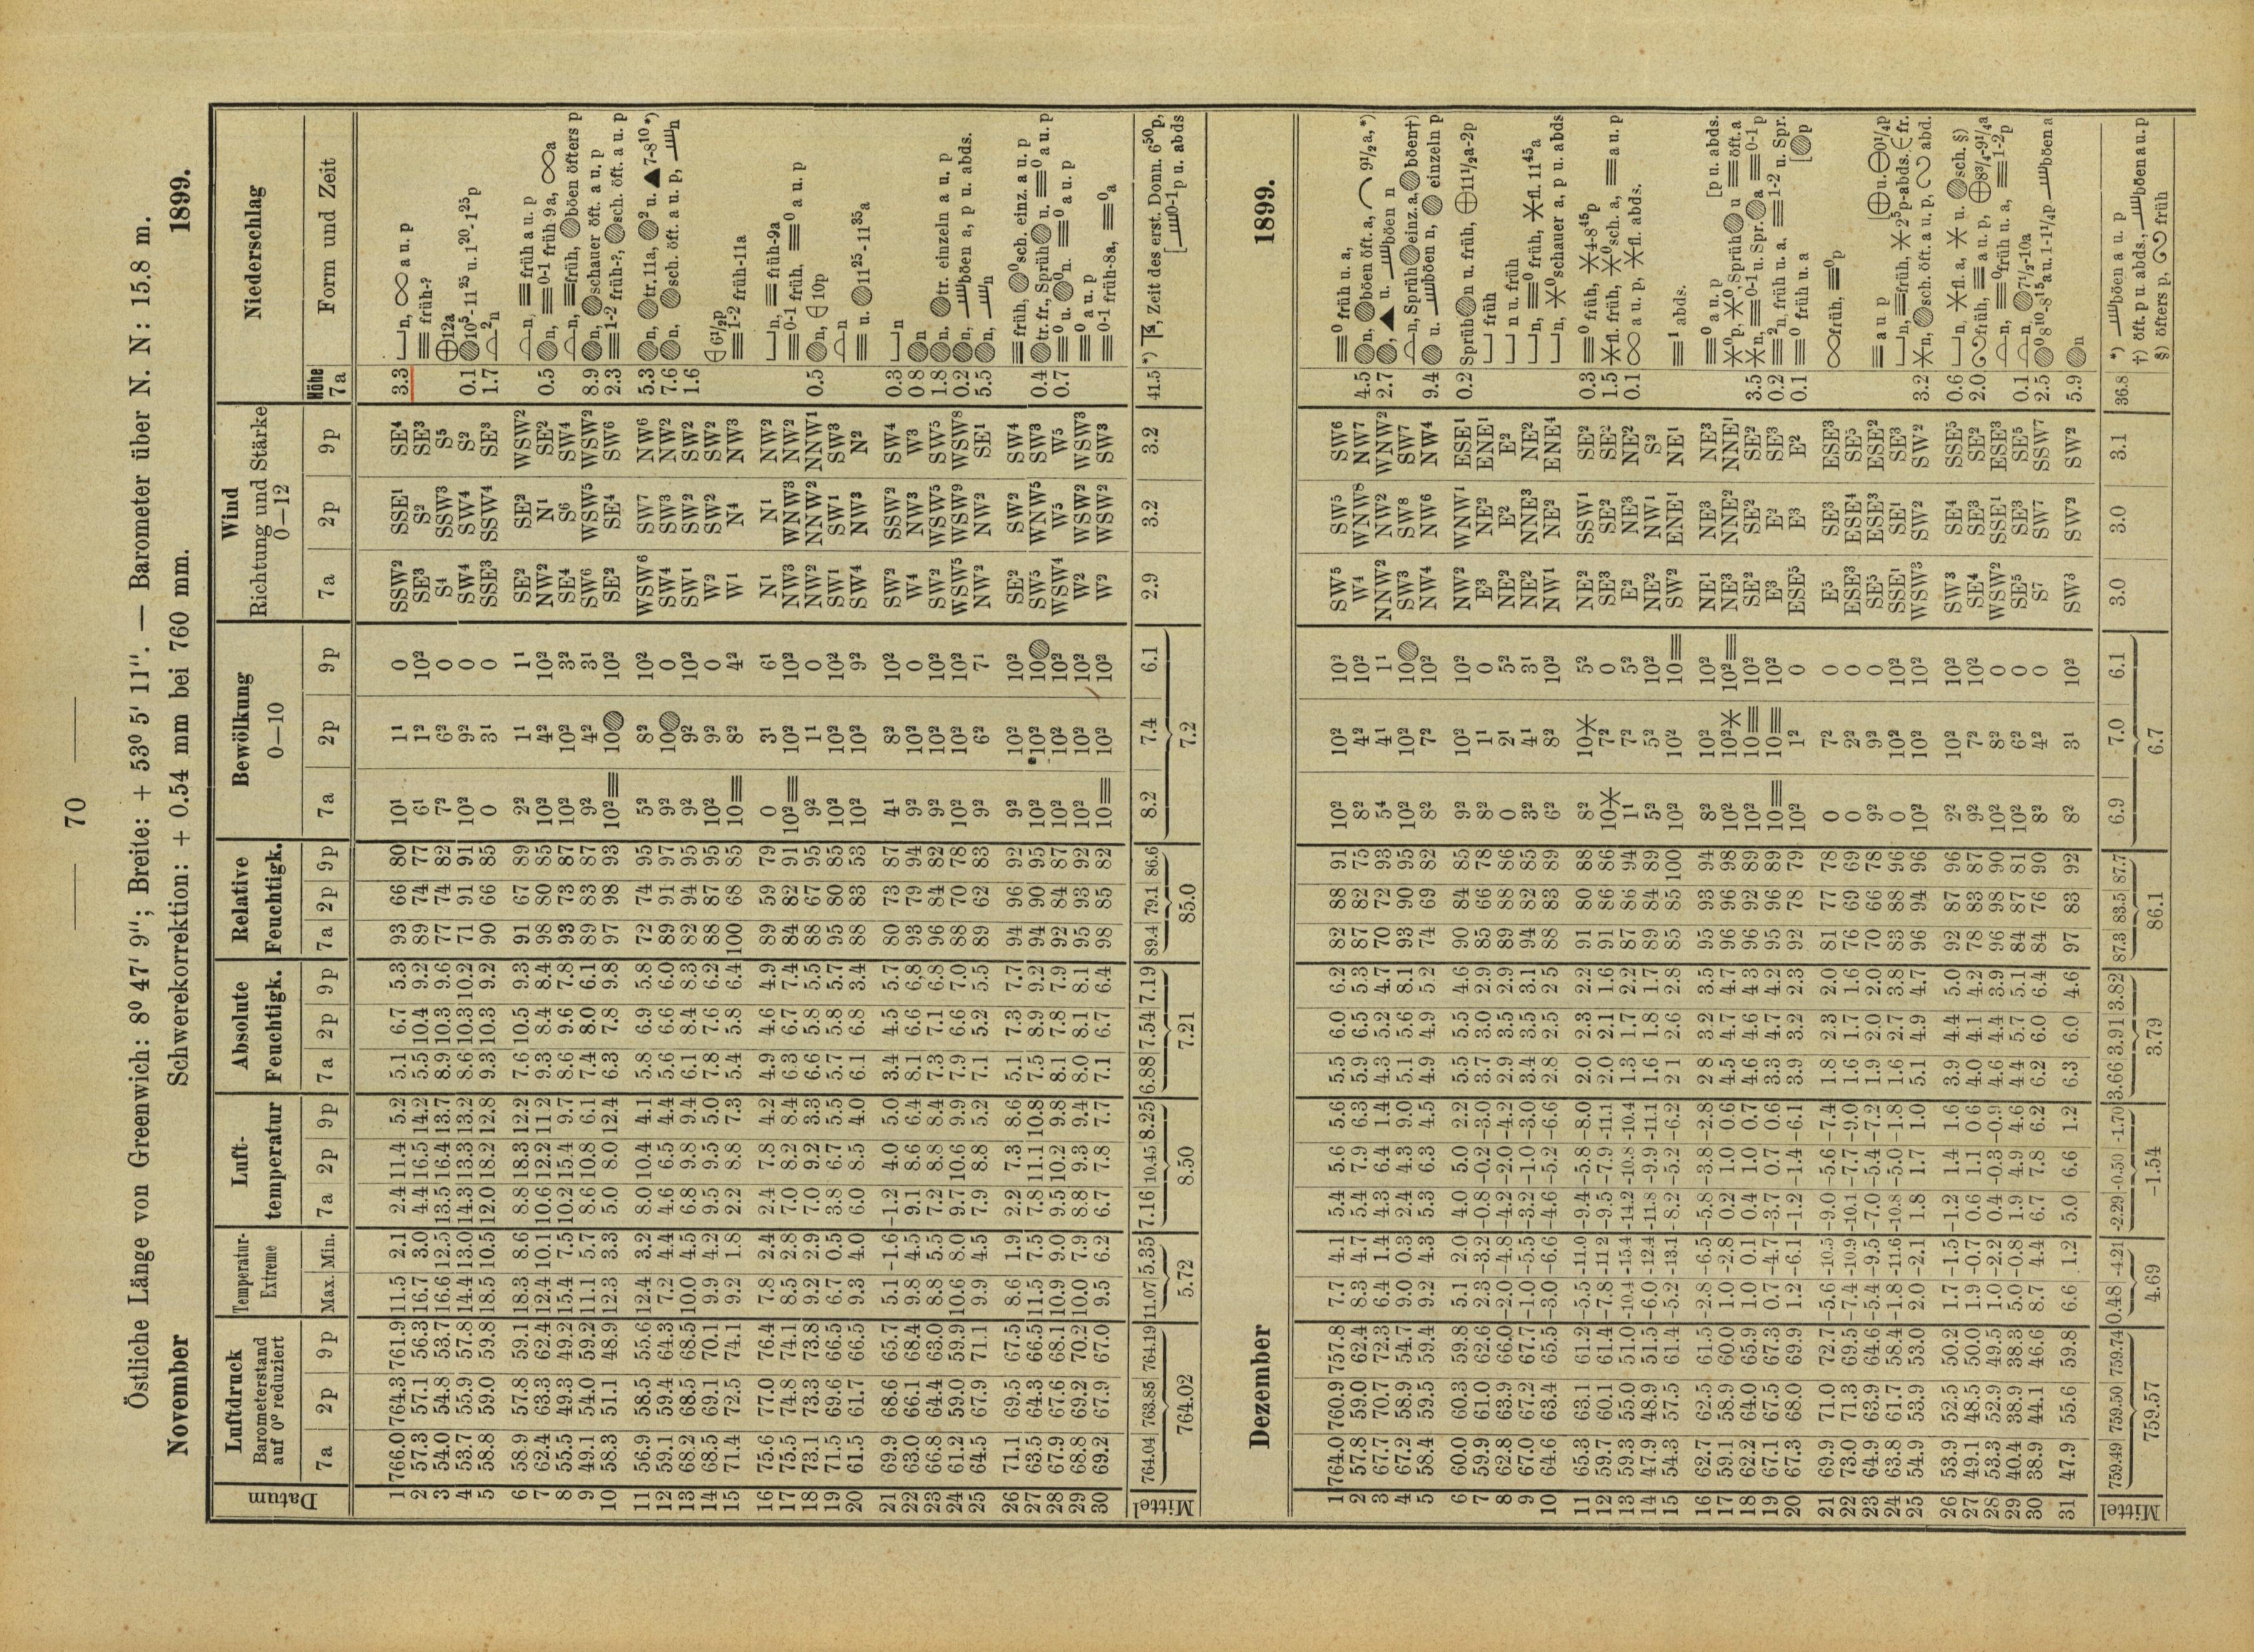 70
Östliche Länge von Greenwich: 8⁰ 47' 9"; Breite: + 53⁰ 5' 11". — Barometer über N. N: 15.8 m.
November Schwerekorrektion: + 0.54 mm bei 760 mm. 1899.
Datum Luftdruck Barometerstand auf 0⁰ reduziert Temperatur-Extreme Luft-temperatur Absolute Feuchtigk. Relative Feuchtigk. Bewölkung 0—10 Wind Richtung und Stärke 0—12 Niederschlag
7a 2p 9p Max. Min. 7a 2p 9p 7a 2p 9p 7a 2p 9p 7a 2p 9p 7a 2p 9p Höhe 7a Form und Zeit
1 766.0 764.3 761.9 11.5 2.1 2.4 11.4 5.2 5.1 6.7 5.3 93 66 80 10¹ 1¹ 0 SSW² SSE¹ SE⁴ 3.3 n, ∞ a u. p
2 57.3 57.1 56.3 16.7 3.0 4.4 16.5 14.2 5.5 10.4 9.2 89 74 77 6¹ 1² 10² SE³ S² SE³ ≡ früh-?
3 54.0 54.8 55.3 16.6 12.5 13.5 16.4 13.7 8.9 10.3 9.6 77 74 82 7² 6² 0 S⁴ SSW³ S⁵ ⊕12a
4 53.7 55.9 57.8 14.4 13.0 14.3 13.3 13.2 8.6 10.3 10.2 71 91 91 10² 9² 0 SW⁴ SW⁴ S² 0.1 10⁵-11²⁵ u. 1²⁰-1²⁵p
5 58.8 59.0 59.8 18.5 10.5 12.0 18.2 12.8 9.3 10.3 9.2 90 66 85 0 3¹ 0 SSE³ SSW⁴ SE³ 1.7 ²n
6 58.9 57.8 59.1 18.3 8.6 8.8 18.3 12.2 7.6 10.5 9.3 91 67 89 2² 1¹ 1¹ SE² SE² WSW² n, ≡ früh a u. p
7 62.4 63.3 62.4 12.4 10.1 10.6 12.2 11.2 9.3 8.4 8.4 98 80 85 10² 4² 10² NW² N¹ SE² 0.5 n, ≡0-1 früh 9a, ∞a
8 55.5 49.3 49.2 15.4 7.5 10.2 15.4 9.7 8.6 9.6 7.8 93 73 87 10² 10² 3² SE⁴ S⁶ SW⁴ n, ≡früh, böen öfters p
9 49.1 54.0 59.2 11.1 5.7 8.6 10.8 6.1 7.4 8.0 6.1 89 83 87 9² 4² 3¹ SW⁶ WSW⁵ WSW² 8.9 n, schauer öft. a u. p
10 58.3 51.1 48.9 12.3 3.3 5.0 8.0 12.4 6.3 7.8 9.8 97 98 93 10²≡ 10 10² SE² SE⁴ SW⁶ 2.3 ≡1-2 früh-?, sch. öft. a u. p
11 56.9 58.5 55.6 12.4 3.2 8.0 10.4 4.1 5.8 6.9 5.8 72 74 95 5² 8² 10² WSW⁶ SW⁷ NW⁶ 5.3 n, tr. 11a, ² u. ▲ 7-8¹⁰ *)
12 59.1 59.4 64.3 7.2 4.4 4.6 6.5 4.4 5.6 6.6 6.0 89 91 97 9² 10 0 SW⁴ SW³ NW² 7.6 n. sch. öft. a u. p, n
13 68.2 68.5 68.5 10.0 4.5 6.8 9.8 9.4 6.1 8.4 8.3 82 94 95 9² 9² 10² SW¹ SW² SW² 1.6
14 68.5 69.1 70.1 9.9 4.2 9.5 9.5 5.0 7.8 7.6 6.2 88 87 95 10² 9² 0 W² SW² SW² 6½p
15 71.4 72.5 74.1 9.2 1.8 2.2 8.8 7.3 5.4 5.8 6.4 100 68 85 10≡ 8² 4² W¹ N⁴ NW³ ≡1-2 früh-11a
16 75.6 77.0 76.4 7.8 2.4 2.4 7.8 4.2 4.9 4.6 4.9 89 59 79 0 3¹ 6¹ N¹ N¹ NW² n, ≡ früh-9a
17 75.5 74.8 74.1 8.5 2.8 7.0 8.2 8.4 6.3 6.7 7.4 84 82 91 10²≡ 10² 10² NW³ WNW³ NW² ≡0-1 früh, ≡⁰ a u. p
18 73.1 73.3 73.8 9.2 2.9 7.0 9.2 3.3 6.6 5.8 5.5 88 67 95 9² 1¹ 0 NW² NNW² NNW¹ 0.5 n, 10p
19 71.5 69.6 66.5 6.7 0.5 3.8 6.7 5.5 5.7 5.8 5.7 95 80 85 10² 10² 10² SW¹ SW¹ SW³ n
20 61.5 61.7 66.5 9.3 4.0 6.0 8.5 4.0 6.1 6.8 3.4 88 83 53 10² 10² 9² SW⁴ NW³ N² ≡ u. 11²⁵-11³⁵a
21 69.9 68.6 65.7 5.1 -1.6 -1.2 4.0 5.0 3.4 4.5 5.7 80 73 87 4¹ 8² 10² SW² SSW² SW⁴ 0.3 n
22 63.0 66.1 68.4 9.8 4.5 9.1 8.6 6.4 8.1 6.6 6.8 93 79 94 9² 10² 0 W⁴ NW³ W³ 0.8 n
23 66.8 64.4 63.0 8.8 5.5 7.2 8.8 8.4 7.3 7.1 6.8 96 84 82 9² 10² 10² SW² WSW⁵ SW⁵ 1.8 n, tr. einzeln a u. p
24 61.2 59.0 59.9 10.6 8.0 9.7 10.6 9.9 7.9 6.6 7.0 88 70 78 10² 10² 10² WSW⁵ WSW⁹ WSW⁸ 0.2 n, böen a, p u. abds.
25 64.5 67.9 71.1 9.9 4.5 7.9 8.8 5.2 7.1 5.2 5.5 89 62 83 9² 6² 7¹ NW² NW² SE¹ 5.5 n, n
26 71.1 69.5 67.5 8.6 1.9 2.2 7.3 8.6 5.1 7.3 7.7 94 96 92 9² 10² 10² SE² SW² SW⁴ ≡ früh, ⁰sch. einz. a u. p
27 63.5 64.3 66.5 11.5 7.5 7.8 11.1 10.8 7.5 8.9 9.2 94 90 95 10² 10² 10 SW⁵ WNW⁵ SW³ 0.4 tr. fr., Sprüh u. ≡⁰ a u. p
28 67.9 67.6 68.1 10.9 9.0 9.5 10.2 9.8 8.1 7.8 7.9 92 84 87 10² 10² 10² WSW⁴ W⁵ W⁵ 0.7 ≡ u. ⁰n. ≡⁰ a u. p
29 68.8 69.2 70.2 10.0 7.9 8.8 9.3 9.4 8.0 8.1 8.1 95 93 92 10² 10² 10² W² WSW² WSW³ ≡⁰ a u. p
30 69.2 67.9 67.0 9.5 6.2 6.7 7.8 7.7 7.1 6.7 6.4 98 85 82 10≡ 10² 10² W² WSW² SW³ ≡0-1 früh-8a, ≡⁰a
Mittel 764.04 763.85 764.19 11.07 5.35 7.16 10.45 8.25 6.88 7.54 7.19 89.4 79.1 86.6 8.2 7.4 6.1 2.9 3.2 3.2 41.5 *) Zeit des erst. Donn. 6⁵⁰p,
764.02 5.72 8.50 7.21 85.0 7.2 [0-1p u. abds
Dezember 1899.
1 764.0 760.9 757.8 7.7 4.1 5.4 5.6 5.6 5.5 6.0 6.2 82 88 91 10² 10² 10² SW⁵ SW⁵ SW⁶ ≡⁰ früh u. a,
2 57.8 59.0 62.4 8.3 4.7 5.4 7.9 6.3 5.9 6.5 5.3 87 82 75 8² 4² 10² W⁴ WNW⁸ NW⁷ 4.5 n, böen öft. a, 9½a, *)
3 67.7 70.7 72.3 6.4 1.4 4.3 6.4 1.4 4.3 5.2 4.7 70 72 93 5⁴ 4¹ 1¹ NNW² NW² WNW² 2.7 , ▲ u. böen n
4 67.2 58.9 54.7 9.0 0.3 2.4 4.3 9.0 5.1 5.6 8.1 93 90 95 10² 10² 10 SW³ SW⁸ SW⁷ n, Sprüh einz. a, böen†)
5 58.4 59.5 59.4 9.2 4.3 5.3 6.3 4.5 4.9 4.9 5.2 74 69 82 8² 7² 10² NW⁴ NW⁶ NW⁴ 9.4 u. böen n, einzeln p
6 60.0 60.3 59.8 5.1 2.0 4.0 5.0 2.2 5.5 5.5 4.6 90 84 85 9² 10² 10² NW² WNW¹ ESE¹ 0.2 Sprüh n u. früh, ⊕11½a-2p
7 59.9 61.0 62.6 2.3 -3.2 -0.8 -0.2 -3.0 3.7 3.0 2.9 85 66 78 8² 1¹ 0 E³ NE² ENE¹ früh
8 62.8 63.9 66.0 -2.0 -4.8 -4.2 -2.0 -4.2 2.9 3.5 2.9 89 88 86 0 2¹ 5² NE² E² E² n u. früh
9 67.0 67.2 67.7 -1.0 -5.5 -3.2 -1.0 -3.0 3.4 3.5 3.1 94 82 85 3² 4¹ 3¹ NE² NNE³ NE² n, ≡⁰ früh, ✶fl. 11⁴⁵a
10 64.6 63.4 65.5 -3.0 -6.6 -4.6 -5.2 -6.6 2.8 2.5 2.5 88 83 89 6² 8² 10² NW¹ NE² ENE⁴ n, ✶⁰schauer a, p u. abds
11 65.3 63.1 61.2 -5.5 -11.0 -9.4 -5.8 -8.0 2.0 2.3 2.2 91 80 88 8² 10✶ 5² NE² SSW¹ SE² 0.3 ≡⁰ früh, ✶4-8⁴⁵p
12 59.7 60.1 61.4 -7.8 -11 2 -9.5 -7.9 -11.1 2.0 2.1 1.6 91 86 86 10✶ 7² 0 SE³ SE² SE² 1.5 ✶fl. früh, ✶⁰sch. a, ≡ a u. p
13 59.3 55.0 51.0 -10.4 -15.4 -14.2 -10.8 -10.4 1.3 1.7 2.2 87 86 94 1¹ 7² 5² E² NE³ NE² 0.1 ∞ a u. p, ✶fl. abds.
14 47.9 48.9 51.5 -6.0 -12.4 -11.8 -9.9 -11.1 1.6 1.8 1.7 89 84 89 5² 5² 10² NE² NW¹ S²
15 54.3 57.5 61.4 -5.2 -13.1 -8.2 -5.2 -6.2 2 1 2.6 2.8 85 85 100 10² 10² 10≡ SW² ENE¹ NE¹ ≡¹ abds.
16 62.7 62.5 61.5 -2.8 -6.5 -5.8 -3.8 -2.8 2 8 3.2 3.5 95 93 94 8² 10² 10² NE¹ NE³ NE³ ≡⁰ a u. p [p u. abds.
17 59.1 58.9 60.0 1.0 -2.8 0.2 1.0 0.6 4.5 4.7 4.7 96 96 98 10² 10²✶ 10²≡ NE³ NNE² NNE¹ ✶⁰p, ✶⁰, Sprüh u ≡ öft. a
18 62.2 64.0 65.9 1.0 0.1 0.4 1.0 0.7 4.6 4.6 4.3 96 92 89 10² 10≡ 10² SE² SE² SE² 3.5 ✶n, ≡0-1 u. Spr. a ≡ 0-1 p
19 67.1 67.5 67.3 0.7 -4.7 -3.7 0.7 0.6 3.3 4.7 4.2 95 96 89 10≡ 10≡ 10² E³ E² SE³ 0.2 ≡²n, früh u. a. ≡1-2 u. Spr.
20 67.3 68.0 69.9 1.2 -6.1 -1.2 -1.4 -6.1 3.9 3.2 2.3 92 78 79 10² 1² 0 ESE⁵ E³ E² 0.1 ≡⁰ früh u. a [p
21 69.9 71.0 72.7 -5.6 -10.5 -9.0 -5.6 -7.4 1.8 2.3 2.0 81 77 78 0 7² 0 E⁵ SE³ ESE³ ∞früh, ≡⁰p
22 73.0 71.3 69.5 -7.4 -10.9 -10.1 -7.7 -9.0 1.6 1.7 1.6 76 69 69 0 2² 0 ESE³ ESE⁴ SE⁵
23 64.9 63.9 64.6 -5.4 -9.5 -7.0 -5.4 -7.2 1.9 2.0 2.0 70 66 78 9² 9² 0 SE⁵ ESE³ ESE² ≡ a u p [⊕u. ⊕0¼p
24 63.8 61.7 58.4 -1.8 -11.6 -10.8 -5.0 -1.8 1.6 2.7 3.8 83 88 96 0 10² 10² SSE¹ SE¹ SE³ n, ≡früh, ✶ 2⁵p-abds. fr.
25 54.9 53.9 53.0 2.0 -2.1 1.8 1.7 1.0 5.1 4.9 4.7 96 94 96 10² 10² 10² WSW³ SW² SW² 3.2 ✶n, sch. öft. a u. p, abd.
26 53.9 52.5 50.2 1.7 -1.5 -1.2 1.4 1.6 3.9 4.4 5.0 92 87 96 2² 10² 10² SW³ SE⁴ SSE⁵ 0.6 n, ✶fl. a, ✶ u. sch. §)
27 49.1 48.5 50.0 1.9 -0.7 0.6 1.1 0.6 4.0 4.1 4.2 78 83 87 9² 7² 10² SE⁴ SE³ SE² 2.0 früh, ≡ a u. p, ⊕8¾-9¼a
28 53.3 52.9 49.5 1.0 -2.2 0.4 -0.3 -0.9 4.6 4.4 3.9 96 98 90 10² 8² 0 WSW² SSE¹ ESE³ n, ≡⁰früh u. a, ≡1-2p
29 40.4 38.9 38.3 5.0 -0.8 1.9 4.9 4.6 4.4 5.7 5.1 84 87 81 10² 6² 0 SE⁵ SE³ SE⁵ 0.1 n, 7½-10a
30 38.9 44.1 46.6 8.7 4.4 6.7 7.8 6.2 6.2 6.0 6.4 84 76 90 8² 4² 0 S⁷ SW⁷ SSW⁷ 2.5 ⁰8¹⁰-8¹⁵a u. 1-1¼p böen a
31 47.9 55.6 59.8 6.6 1.2 5.0 6.6 1.2 6.3 6.0 4.6 97 83 92 8² 3¹ 10² SW³ SW² SW² 5.9 n
Mittel 759.49 759.50 759.74 0.48 -4.21 -2.29 -0.50 -1.70 3.66 3.91 3.82 87.3 83.5 87.7 6.9 7.0 6.1 3.0 3.0 3.1 36.8 *) böen a u. p
759.57 4.69 -1.54 3.79 86.1 6.7 †) öft. p u. abds., böen a u. p
§) öfters p, früh